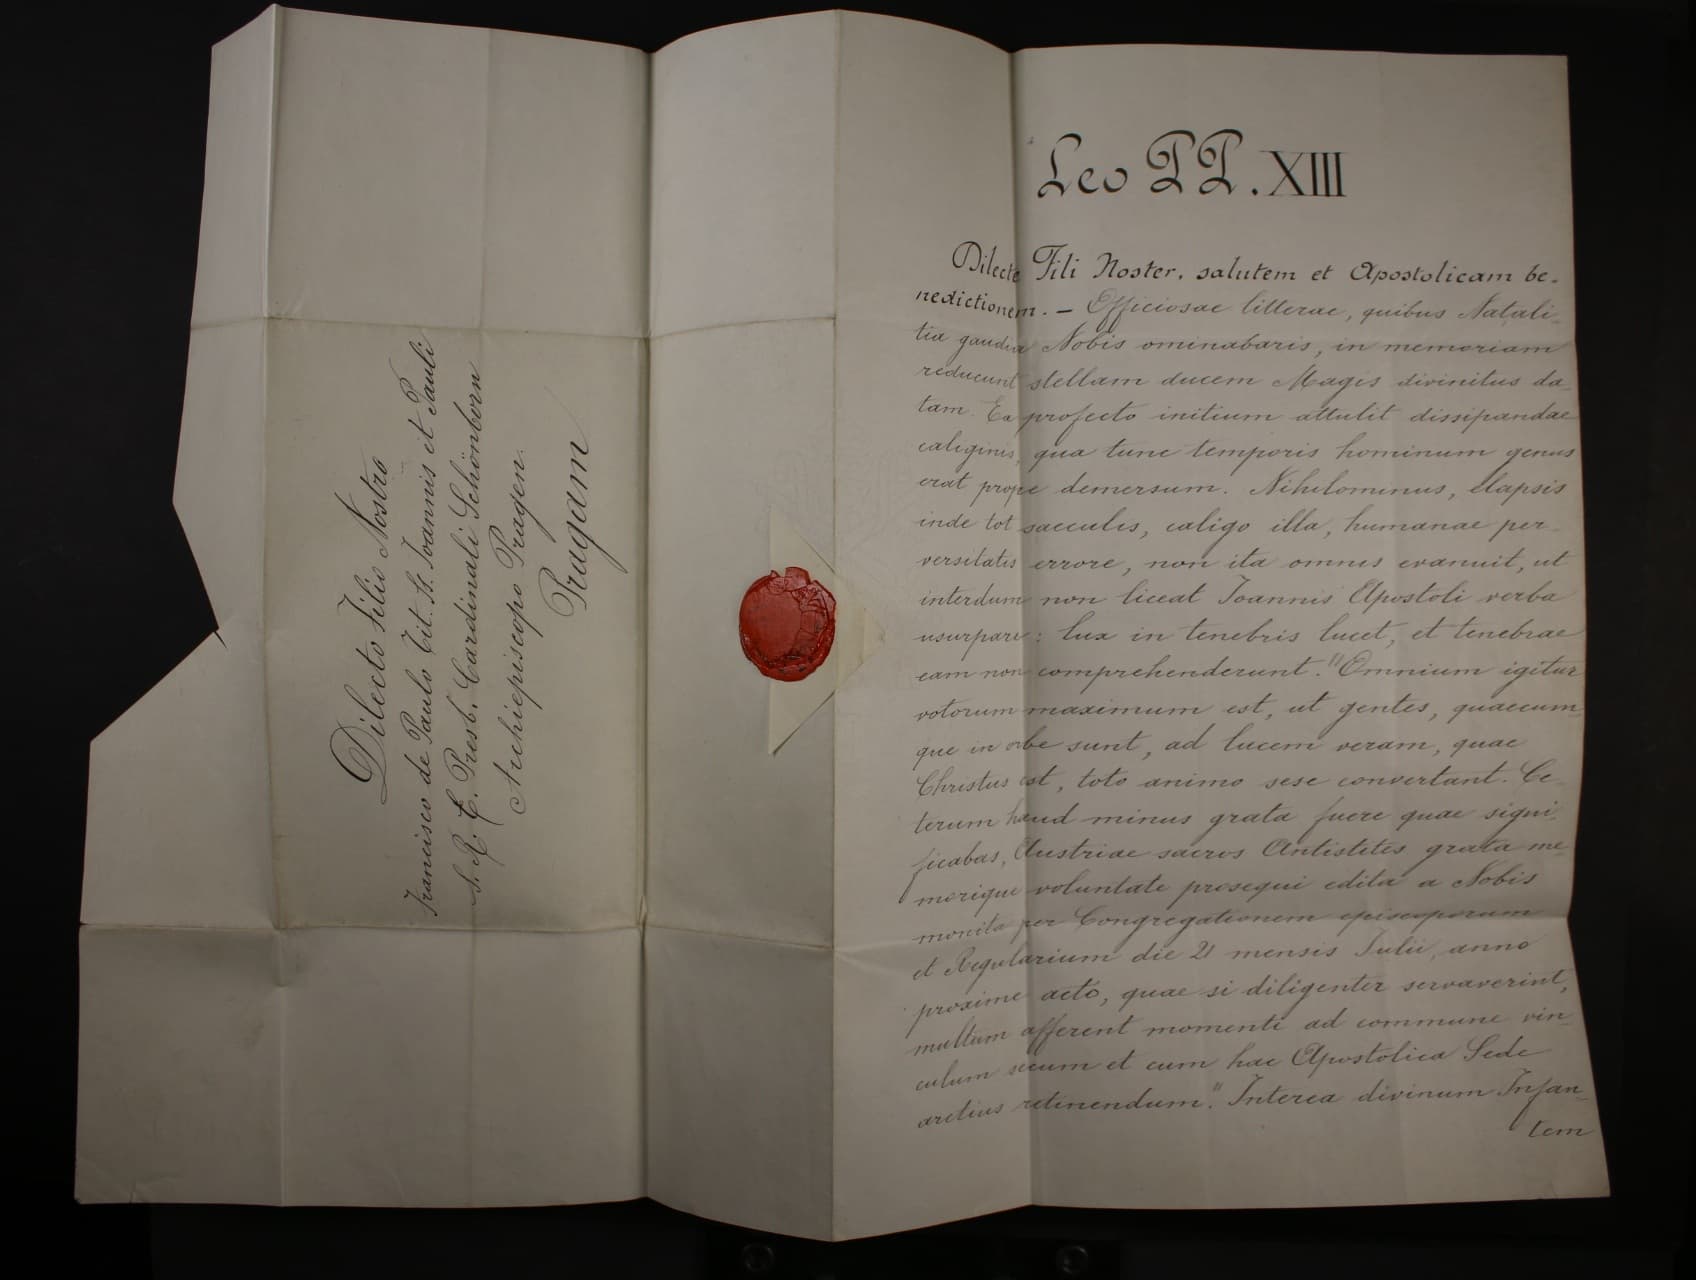 Dilecto Filio Nostro
Francisco de Paulo Tit. St. Joannis et Pauli
S. R. E. Presb. Cardinali Schönborn
Archiepiscopo Pragen.
Pragam
Leo PP. XIII
Dilecte Fili Noster, salutem et Apostolicam be-
nedictionem. — Officiosae litterae, quibus Natali-
tia gaudia Nobis ominabaris, in memoriam
reducunt stellam ducem Magis divinitus da-
tam. Ea profecto initium attulit dissipandae
caliginis, qua tunc temporis hominum genus
erat prope demersum. Nihilominus, elapsis
inde tot saeculis, caligo illa, humanae per-
versitatis errore, non ita omnis evanuit, ut
interdum non liceat Joannis Apostoli verba
usurpare: lux in tenebris lucet, et tenebrae
eam non comprehenderunt." Omnium igitur
votorum maximum est, ut gentes, quaecum-
que in orbe sunt, ad lucem veram, quae
Christus est, toto animo sese convertant. Ce-
terum haud minus grata fuere quae signi-
ficabas, Austriae sacros Antistites grata me-
morique voluntate prosequi edita a Nobis
monita per Congregationem episcoporum
et Regularium die 21 mensis Julii, anno
proxime acto, quae si diligenter servaverint,
multum afferent momenti ad commune vin-
culum secum et cum hac Apostolica Sede
arctius retinendum." Interea divinum Infan-
tem